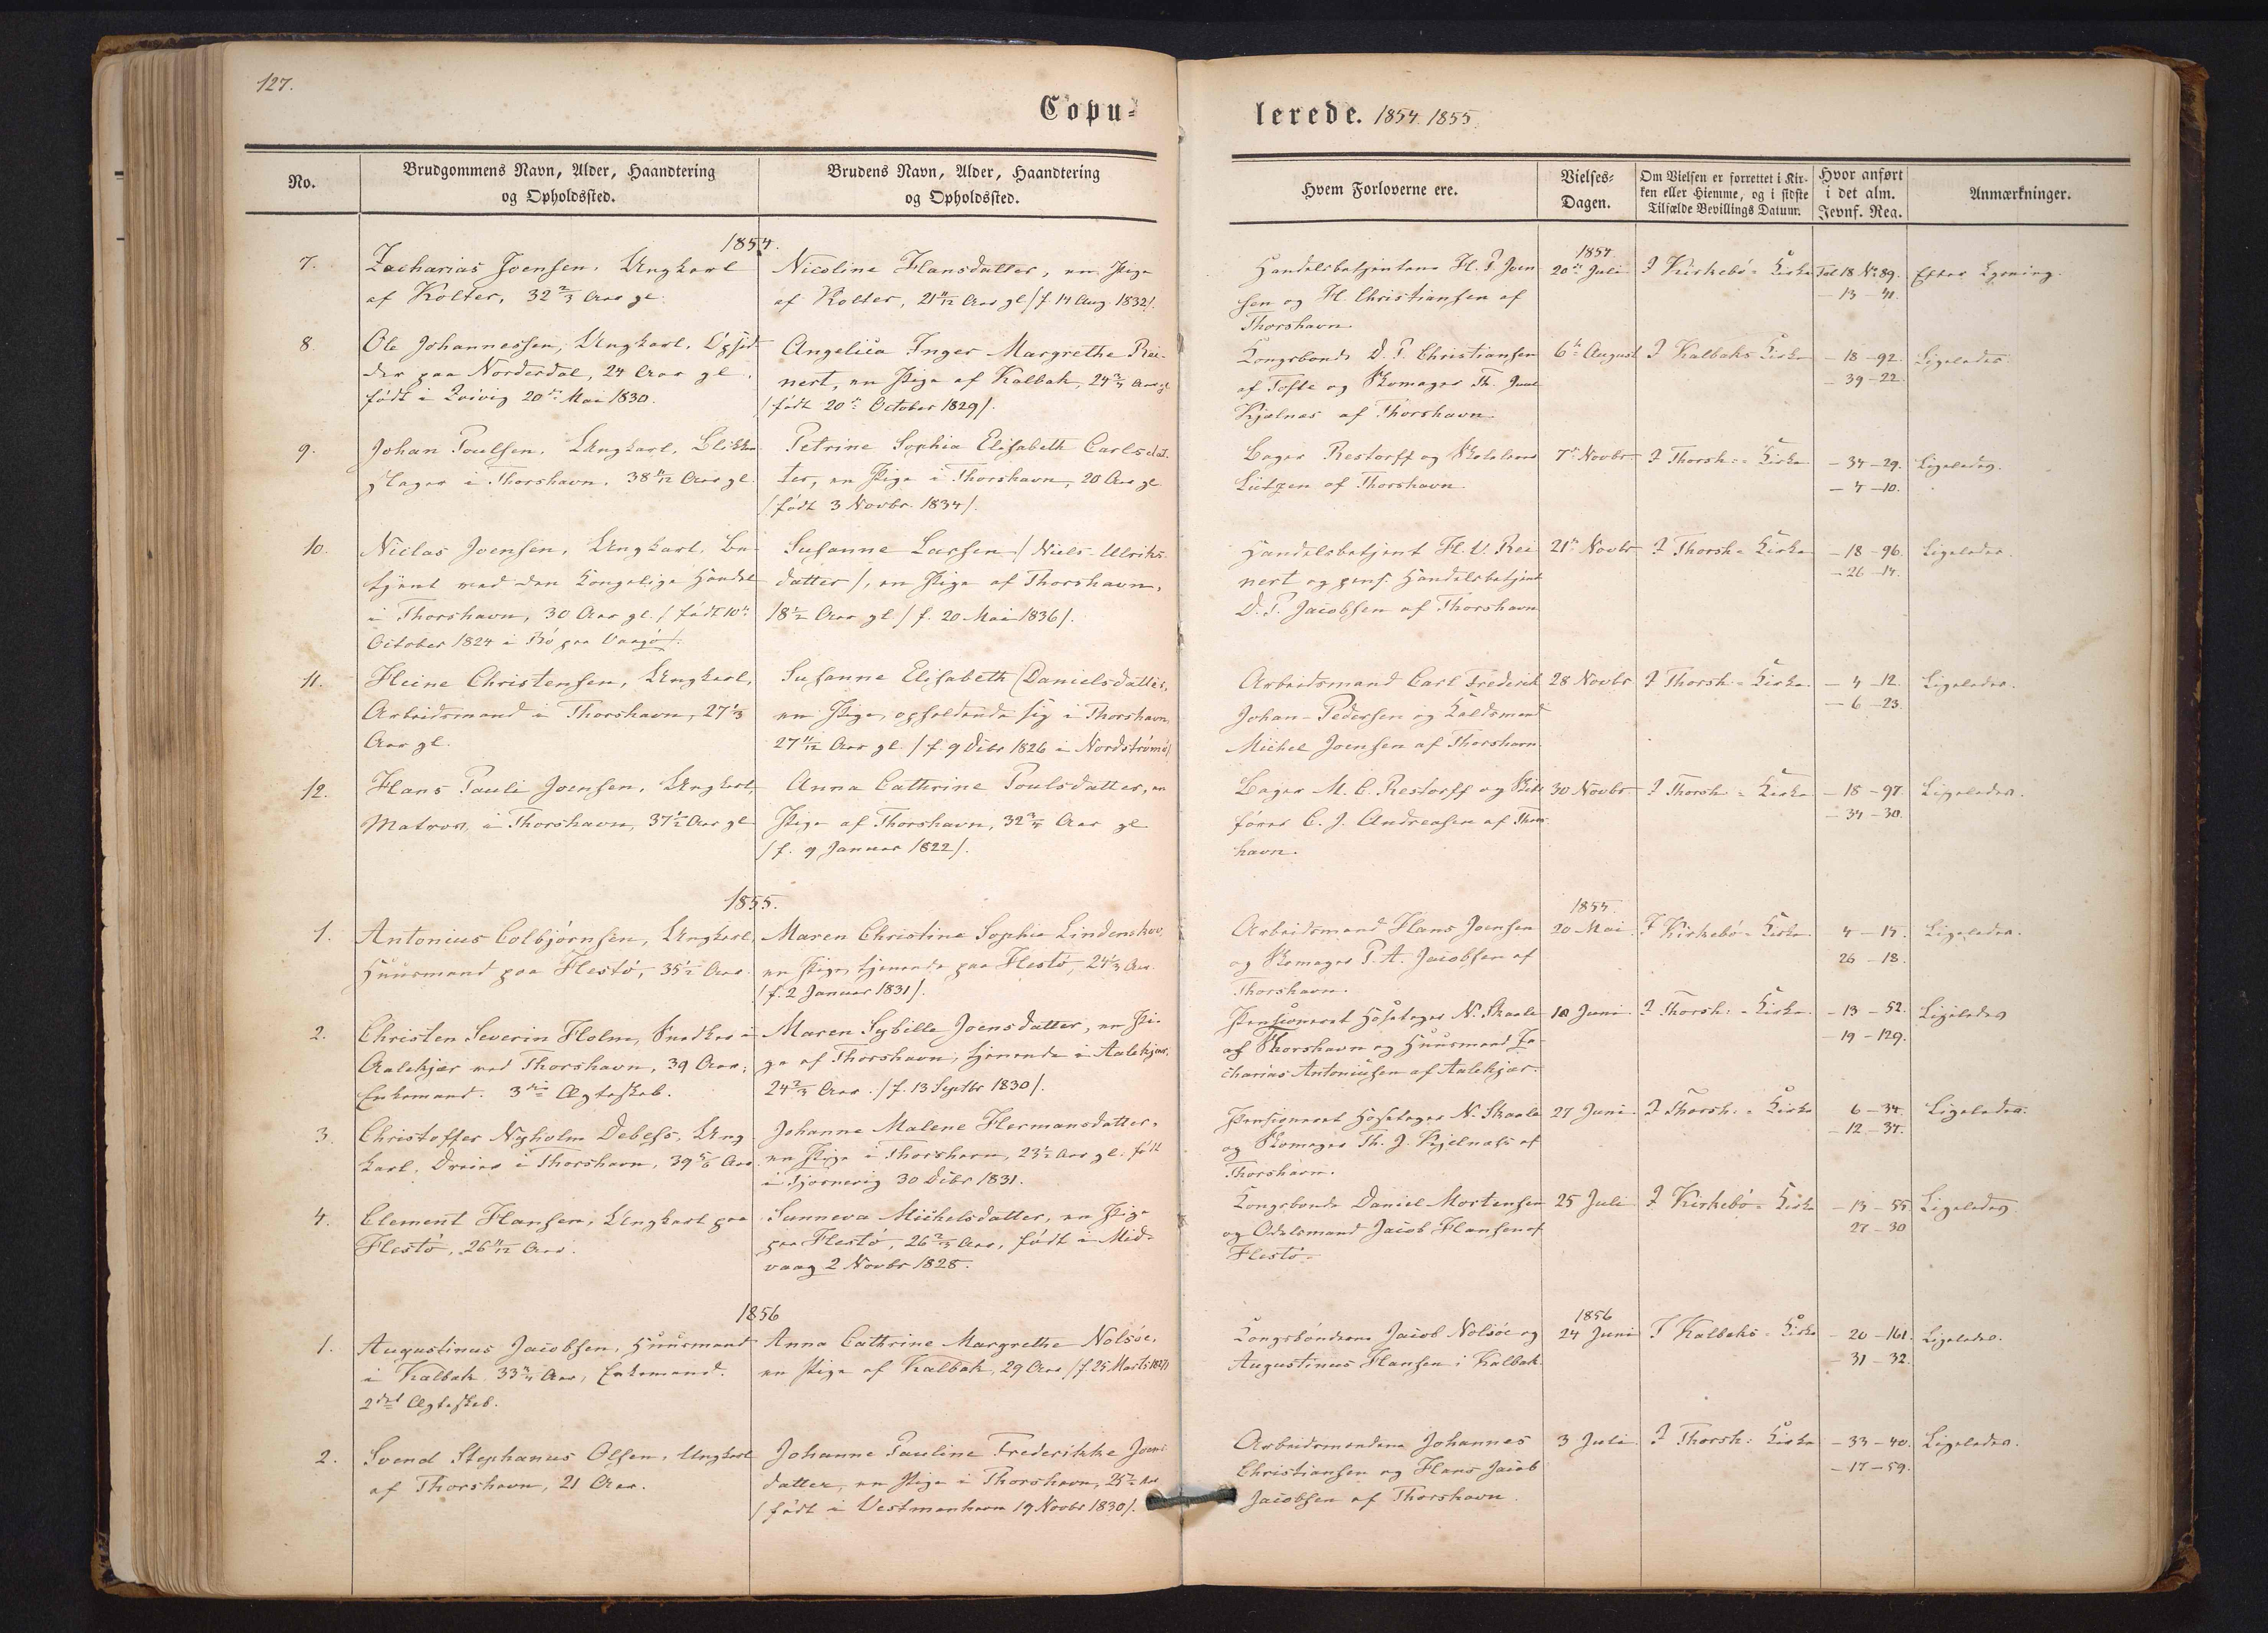 127.
Copu=
lerede. 1854. 1855.
No.
Brudgommens Navn, Alder, Haandtering
og Opholdssted.
Brudens Navn, Alder, Haandtering
og Opholdssted.
Hvem Forloverne ere.
Vielses=
Dagen.
Om Vielsen er forrettet i Kir=
ken eller Hiemme, og i sidste
Tilfælde Bevillings Datum.
Hvor anført
i det alm.
Jevnf. Reg.
Anmærkninger.
1854.
7.
Zacharias Joensen, Ungkarl
af Kolter, 32 2/3 Aar gl.
Nicoline Hansdatter, en Pige
af Kolter, 21 11/12 Aar gl /f. 14 Aug. 1832/.
Handelsbetjentene H. P. Joen
sen og H. Christiansen af
Thorshavn
1854
20de Juli
I Kirkebø=Kirke
Fol 18 No 89.
- 13 - 41.
Efter Lysning.
8.
Ole Johannessen, Ungkarl, Opsid
der paa Norderdal, 24 Aar gl.
født i Qvivig 20de Mai 1830.
Angelica Inger Margrethe Rei-
nert, en Pige af Kalbak, 24 3/4 Aar gl
/født 20de October 1829/.
Kongsbonde D. P. Christiansen
af Tofte og Skomager Th. Juul
Kjølnæs af Thorshavn
6te August
I Kalbaks Kirke
- 18 - 92.
- 39 - 22.
Ligeledes
9.
Johan Poulsen, Ungkarl, Blikken
slager i Thorshavn, 38 11/12 Aar gl.
Petrine Sophia Elisabeth Carlsdat.
ter, en Pige i Thorshavn, 20 Aar gl
/født 3 Novbr. 1834/.
Bager Restorff og Skolelærer
Lützen af Thorshavn.
7de Novbr
I Thorsh:=Kirke
- 34 - 29.
- 4 - 10.
Ligeledes.
10.
Niclas Joensen, Ungkarl, Be-
tjent ved den Kongelige Handel
i Thorshavn, 30 Aar gl. /født 10de
October 1824 i Bø paa Vaagø/.
Susanne Larsen /Niels-Ulriks-
datter/, en Pige af Thorshavn,
18 1/2 Aar gl /f. 20 Mai 1836/.
Handelsbetjent H. U. Rei
nert og pens. Handelsbetjent
D. P. Jacobsen af Thorshavn
21de Novbr
I Thorsh=Kirke
- 18 - 96.
- 26 - 14.
Ligeledes.
11.
Heine Christensen, Ungkarl,
Arbeidsmand i Thorshavn, 27 1/3
Aar gl.
Susanne Elisabeth Danielsdatter,
en Pige, opholdende sig i Thorshavn,
27 11/12 Aar gl. /f. 9 Dcbr 1826 i Nordstrømø/
Arbeidsmand Carl Frederik
Johan-Pedersen og
Michel Joensen af Thorshavn.
28 Novbr
I Thorsh=Kirke.
- 4 - 12.
- 6 - 23.
Ligeledes.
12.
Hans Pauli Joensen, Ungkarl,
Matros, i Thorshavn, 37 1/2 Aar gl
Anna Cathrine Poulsdatter, en
Pige af Thorshavn, 32 3/4 Aar gl
/f. 9 Januar 1822/.
Bager M. C. Restorff og Skibs
fører C. J. Andreasen af Thors
havn.
30 Novbr
I Thorsh=Kirke
- 18 - 97.
- 34 - 30.
Ligeledes.
1855.
1.
Antonius Colbjørnsen, Ungkarl,
Huusmand paa Hestø, 35 1/2 Aar.
Maren Christine Sophie Lindenskov,
en Pige, tjenende paa Hestø, 24 1/3 Aar.
/f. 2 Januar 1831/.
Arbeidsmand Hans Joensen
og Skomager P. A. Jacobsen af
Thorshavn.
1855.
20 Mai
I Kirkebø=Kirke.
4 - 15.
26 - 18.
Ligeledes.
2.
Christen Severin Holm, Snedker i
Aalekjær ved Thorshavn, 39 Aar,
Enkemand. 3die Ægteskab.
Maren Sybille Joensdatter, en Pi-
ge af Thorshavn, tjenende i Aalekjær.
24 2/3 Aar. /f. 13 Septbr 1830/.
Pensioneret Hosetager N. Skaale
af Thorshavn og Huusmand Za-
charias Antoniussen af Aalekjær.
10 Juni
I Thorsh:=Kirke
- 13 - 52.
- 19 - 129.
Ligeledes
3.
Christoffer Nyholm Debess, Ung
karl, Dreier i Thorshavn, 39 5/6 Aar
Johanne Malene Hermansdatter,
en Pige i Thorshavn, 23 1/2 Aar gl. født
i Tjørnevig 30 Dcbr 1831.
Pensioneret Hosetager N. Skaale
og Skomager Th. J. Kjelnæss af
Thorshavn.
27 Juni
I Thorsh:=Kirke
6 - 34.
- 12 - 37.
Ligeledes.
4.
Clement Hansen, Ungkarl paa
Hestø, 26 11/12 Aar.
Sunneva Michelsdatter, en Pige
paa Hestø, 26 2/3 Aar, født i Mid-
vaag 2 Novbr 1828.
Kongsbonde Daniel Mortensen
og Odelsmand Jacob Hansen af
Hestø.
25 Juli
I Kirkebø=Kirke
- 13 - 55
27 - 30
Ligeledes
1856
1.
Augustinus Jacobsen, Huusmand
i Kalbak, 33 3/4 Aar, Enkemand.
2det Ægteskab.
Anna Cathrine Margrethe Nolsøe,
en Pige af Kalbak, 29 Aar /f. 25 Marts 1827/
Kongsbønderne Jacob Nolsøe og
Augustinus Hansen i Kalbak.
1856
24 Juni
I Kalbaks=Kirke
- 20 - 161.
- 31 - 32.
Ligeledes.
2.
Svend Stephanus Olsen, Ungkarl
af Thorshavn, 21 Aar.
Johanne Pauline Frederikke Joens
datter, en Pige i Thorshavn, 25 1/2 Aar
/født i Vestmanhavn 19 Novbr 1830/.
Arbeidsmændene Johannes
Christiansen og Hans Jacob
Jacobsen af Thorshavn.
3 Juli
I Thorsh: Kirke
- 33 - 40.
- 17 - 59.
Ligeledes.